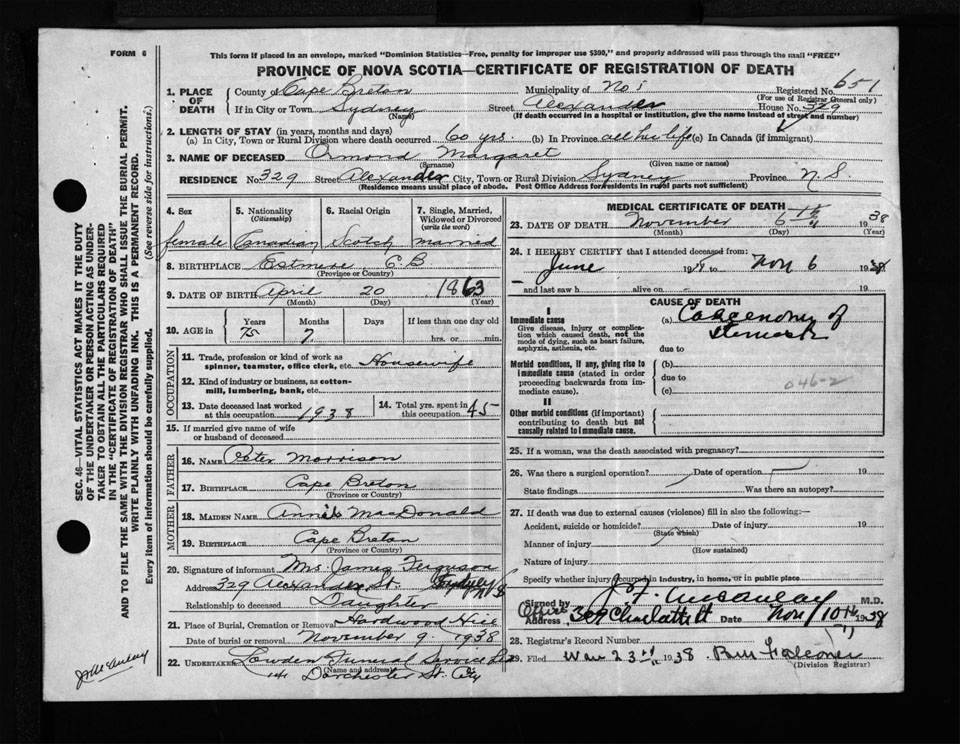 FORM 6
This form if placed in an envelope, marked "Dominion Statistics—Free, penalty for improper use $300," and properly addressed will pass through the mail "FREE"
PROVINCE OF NOVA SCOTIA—CERTIFICATE OF REGISTRATION OF DEATH
SEC. 46—VITAL STATISTICS ACT MAKES IT THE DUTY
OF THE UNDERTAKER OR PERSON ACTING AS UNDER-
TAKER TO OBTAIN ALL THE PARTICULARS REQUIRED
IN THE "CERTIFICATE OF REGISTRATION OF DEATH"
AND TO FILE THE SAME WITH THE DIVISION REGISTRAR WHO SHALL ISSUE THE BURIAL PERMIT.
WRITE PLAINLY WITH UNFADING INK. THIS IS A PERMANENT RECORD.
Every item of information should be carefully supplied. (See reverse side for instructions.)
1. PLACE OF DEATH County of Cape Breton Municipality of No. 5 Registered No. 651
(For use of Registrar General only)
If in City or Town Sydney (Name) Street Alexander House No. 329
(If death occurred in a hospital or institution, give the name instead of street and number)
2. LENGTH OF STAY (in years, months and days)
(a) In City, Town or Rural Division where death occurred 60 yrs. (b) In Province all her life (c) In Canada (if immigrant)
3. NAME OF DECEASED Ormond Margaret
(Surname) (Given name or names)
RESIDENCE No. 329 Street Alexander City, Town or Rural Division Sydney Province N.S
(Residence means usual place of abode. Post Office Address for residents in rural parts not sufficient)
4. Sex 5. Nationality (Citizenship) 6. Racial Origin 7. Single, Married, Widowed or Divorced (write the word)
female Canadian Scotch married
8. BIRTHPLACE C.B
(Province or Country)
9. DATE OF BIRTH April 20 1863
(Month) (Day) (Year)
10. AGE in Years Months Days If less than one day old
75 7 hrs. or min.
OCCUPATION
11. Trade, profession or kind of work as spinner, teamster, office clerk, etc. Housewife
12. Kind of industry or business, as cotton-mill, lumbering, bank, etc.
13. Date deceased last worked at this occupation 1938 14. Total yrs. spent in this occupation 45
15. If married give name of wife or husband of deceased
FATHER
16. Name Peter Morrison
17. Birthplace Cape Breton
(Province or Country)
MOTHER
18. Maiden Name Annie MacDonald
19. Birthplace Cape Breton
(Province or Country)
20. Signature of informant Mrs. James Ferguson
Address 329 Alexander St. Sydney N S
Relationship to deceased Daughter
21. Place of Burial, Cremation or Removal Hardwood Hill
Date of burial or removal November 9 1938
22. Undertaker Lowden Funeral Service Ltd
(Name and address)
141 Dorchester St. City
MEDICAL CERTIFICATE OF DEATH
23. DATE OF DEATH November 6th 1938
(Month) (Day) (Year)
24. I HEREBY CERTIFY that I attended deceased from:
June 19 to Nov 6 1938
and last saw h alive on 19
CAUSE OF DEATH
I
Immediate cause
Give disease, injury or complication which caused death, not the mode of dying, such as heart failure, asphyxia, asthenia, etc.
(a) of stomach
due to
Morbid conditions, if any, giving rise to immediate cause (stated in order proceeding backwards from immediate cause).
(b)
due to
(c) 046-2
II
Other morbid conditions (if important) contributing to death but not causally related to immediate cause.
25. If a woman, was the death associated with pregnancy?
26. Was there a surgical operation? Date of operation 19
State findings Was there an autopsy?
27. If death was due to external causes (violence) fill in also the following:—
Accident, suicide or homicide? Date of injury 19
(State which)
Manner of injury
(How sustained)
Nature of injury
Specify whether injury occurred in industry, in home, or in public place
Signed by J.F. McAulay M.D.
Office Address Charlotte St Date Nov 10th 1938
28. Registrar's Record Number
29. Filed 1938 Falconer
(Division Registrar)